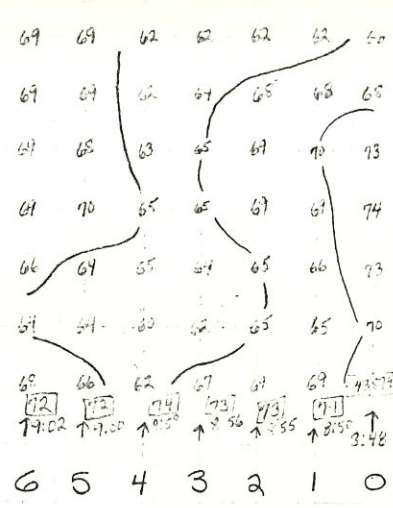 69 69 62 62 62 62 60
69 69 62 64 68 68 68
69 68 63 65 69 70 73
69 70 65 65 69 69 74
66 64 65 64 65 66 73
64 64 60 62 65 65 70
68 66 62 67 69 69
72 72 74 73 73 71
↑9:02 ↑9:00 ↑ ↑8:56 ↑8:55 ↑8:50 ↑
3:48
6 5 4 3 2 1 0